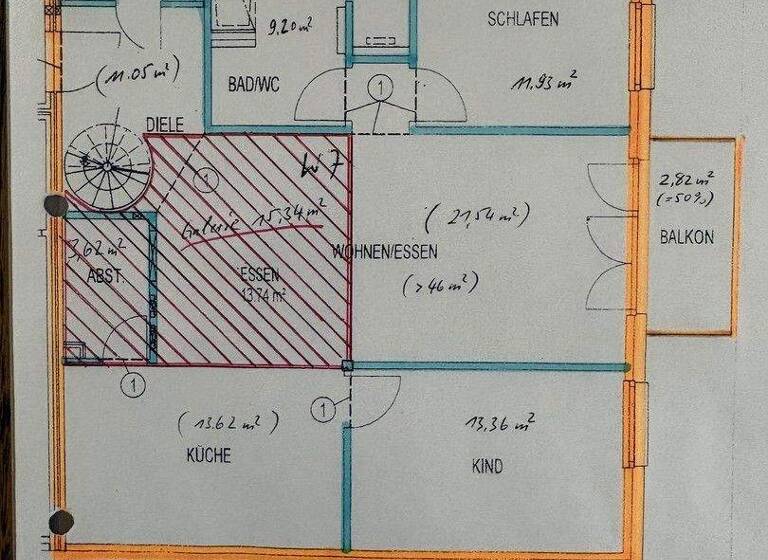 SCHLAFEN
9.20 m²
(11.05 m²)
BAD/WC
11.93 m²
1
DIELE
W 7
1
2,82 m²
(=50%)
(21,54 m²)
Galerie 15,34 m²
BALKON
3,62 m²
WOHNEN/ESSEN
ABST.
ESSEN
13.74 m²
(>46 m²)
1
1
(13.62 m²)
13,36 m²
KÜCHE
KIND